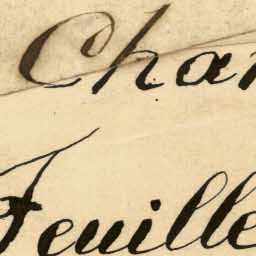 Char
Feuille